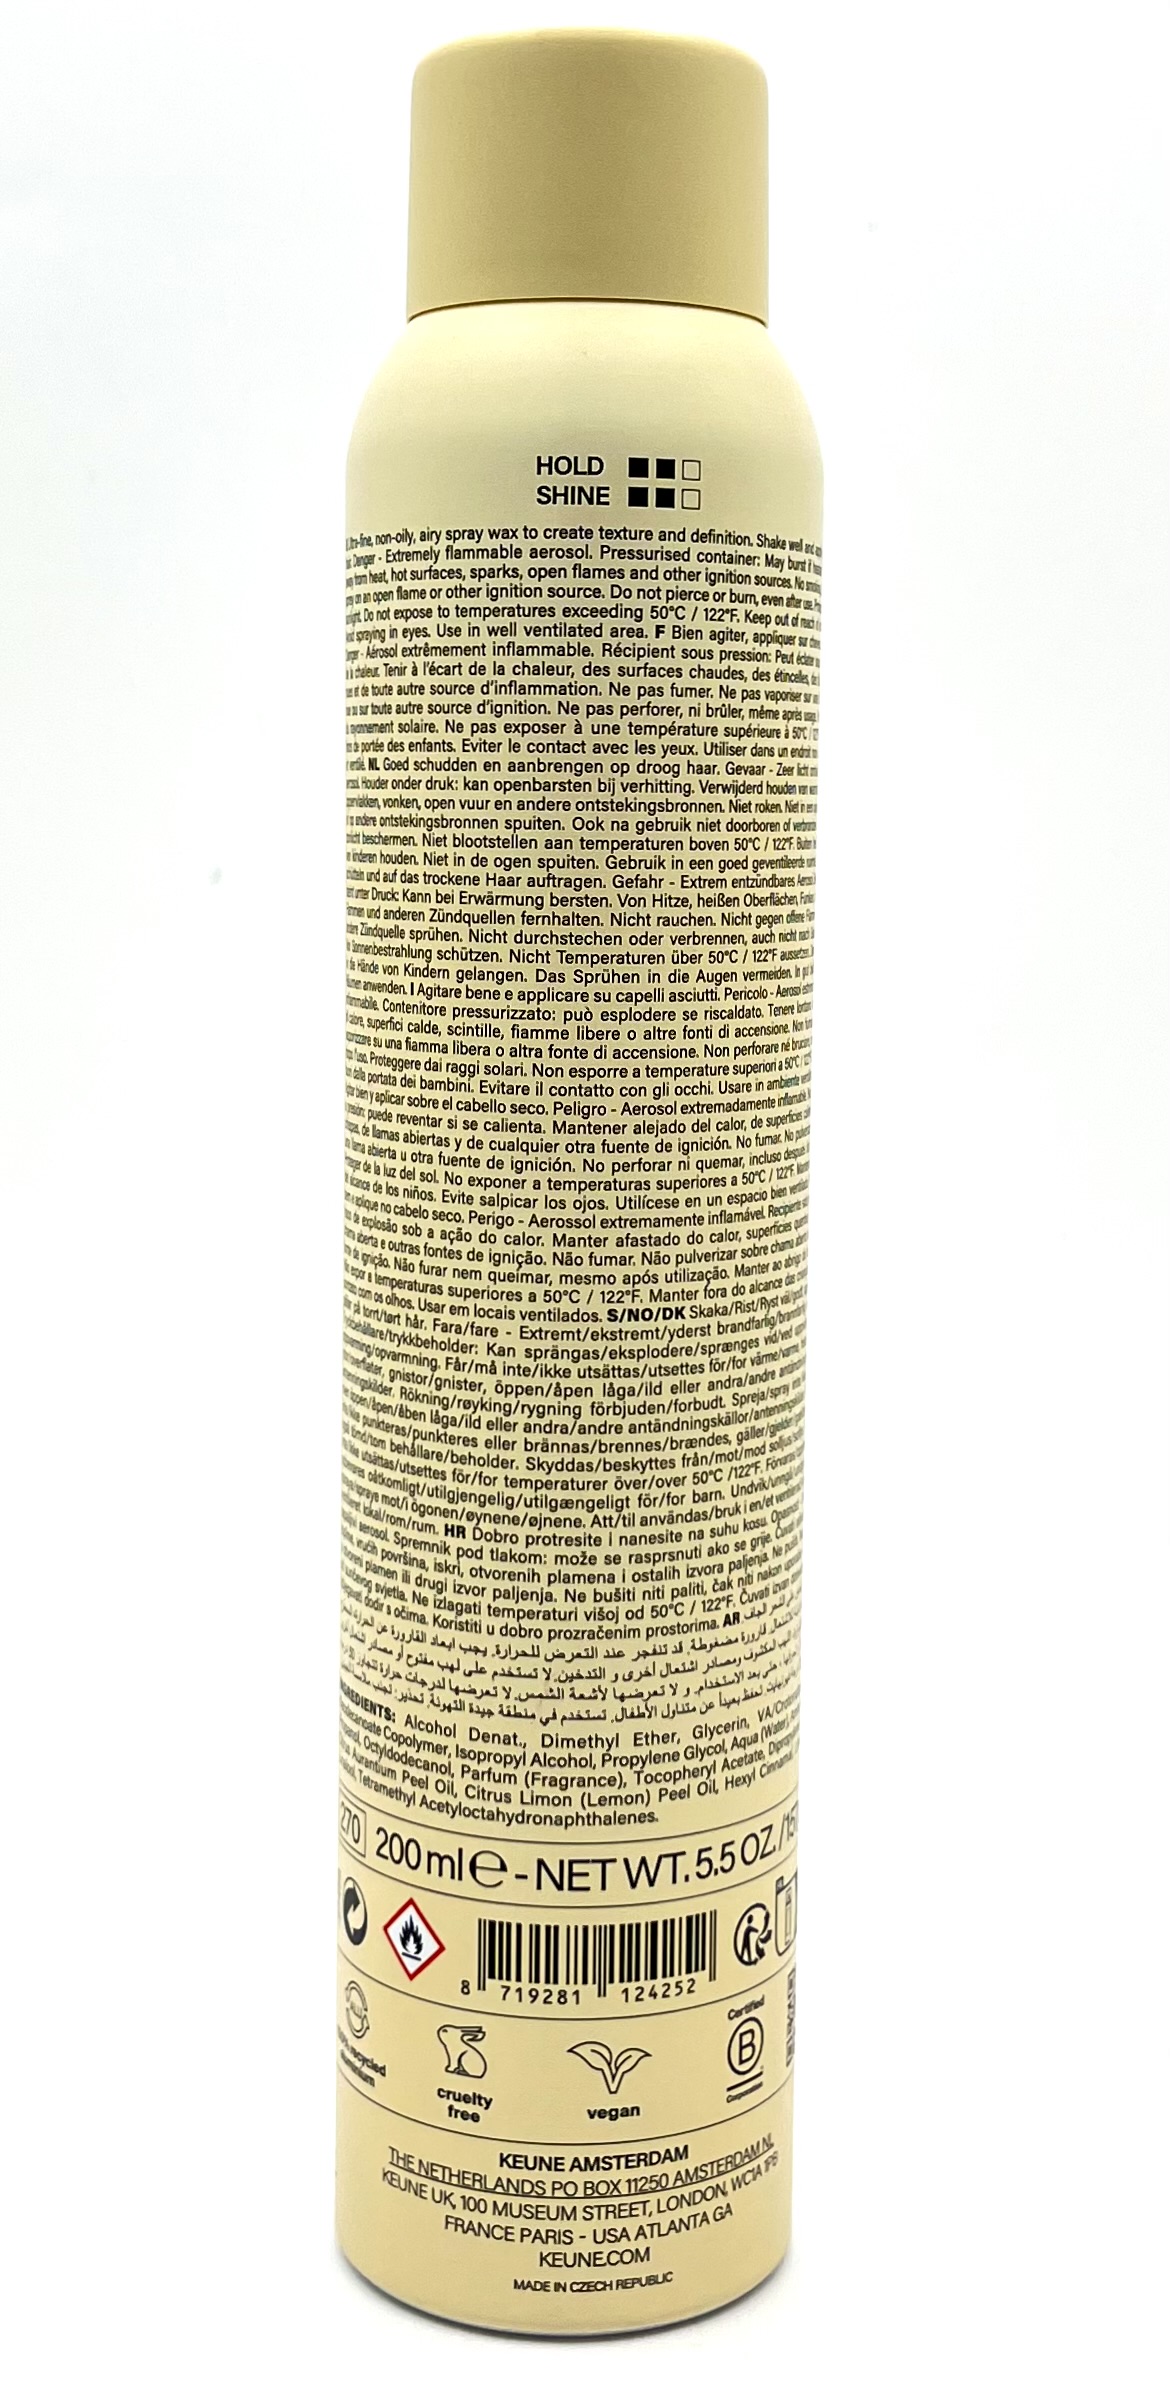 HOLD
SHINE
Ultra-fine, non-oily, airy spray wax to create texture and definition. Shake well and
Danger - Extremely flammable aerosol. Pressurised container: May burst if
from heat, hot surfaces, sparks, open flames and other ignition sources. No smoking
on an open flame or other ignition source. Do not pierce or burn, even after use.
Do not expose to temperatures exceeding 50°C / 122°F. Keep out of reach of
spraying in eyes. Use in well ventilated area. F Bien agiter, appliquer sur
- Aérosol extrêmement inflammable. Récipient sous pression: Peut éclater
chaleur. Tenir à l'écart de la chaleur, des surfaces chaudes, des étincelles,
et de toute autre source d'inflammation. Ne pas fumer. Ne pas vaporiser sur
ou sur toute autre source d'ignition. Ne pas perforer, ni brûler, même après usage.
rayonnement solaire. Ne pas exposer à une température supérieure à 50°C /
de portée des enfants. Eviter le contact avec les yeux. Utiliser dans un endroit
NL Goed schudden en aanbrengen op droog haar. Gevaar - Zeer licht
Houder onder druk: kan openbarsten bij verhitting. Verwijderd houden van
vonken, open vuur en andere ontstekingsbronnen. Niet roken. Niet in een
andere ontstekingsbronnen spuiten. Ook na gebruik niet doorboren of
beschermen. Niet blootstellen aan temperaturen boven 50°C / 122°F. Buiten
kinderen houden. Niet in de ogen spuiten. Gebruik in een goed geventileerde
und auf das trockene Haar auftragen. Gefahr - Extrem entzündbares
unter Druck: Kann bei Erwärmung bersten. Von Hitze, heißen Oberflächen,
und anderen Zündquellen fernhalten. Nicht rauchen. Nicht gegen offene
Zündquelle sprühen. Nicht durchstechen oder verbrennen, auch nicht nach
Sonnenbestrahlung schützen. Nicht Temperaturen über 50°C / 122°F aussetzen.
die Hände von Kindern gelangen. Das Sprühen in die Augen vermeiden. In gut
anwenden. I Agitare bene e applicare su capelli asciutti. Pericolo - Aerosol
Contenitore pressurizzato: può esplodere se riscaldato. Tenere
calore, superfici calde, scintille, fiamme libere o altre fonti di accensione. Non
su una fiamma libera o altra fonte di accensione. Non perforare né
l'uso. Proteggere dai raggi solari. Non esporre a temperature superiori a 50°C /
dalla portata dei bambini. Evitare il contatto con gli occhi. Usare in ambiente
bien y aplicar sobre el cabello seco. Peligro - Aerosol extremadamente inflamable.
puede reventar si se calienta. Mantener alejado del calor, de superficies
de llamas abiertas y de cualquier otra fuente de ignición. No fumar. No
llama abierta u otra fuente de ignición. No perforar ni quemar, incluso después
de la luz del sol. No exponer a temperaturas superiores a 50°C / 122°F.
alcance de los niños. Evite salpicar los ojos. Utilícese en un espacio bien
aplique no cabelo seco. Perigo - Aerossol extremamente inflamável. Recipiente
de explosão sob a ação do calor. Manter afastado do calor, superfícies
aberta e outras fontes de ignição. Não fumar. Não pulverizar sobre chama
de ignição. Não furar nem queimar, mesmo após utilização. Manter ao abrigo
a temperaturas superiores a 50°C / 122°F. Manter fora do alcance das
com os olhos. Usar em locais ventilados. S/NO/DK Skaka/Rist/Ryst
på torrt/tørt hår. Fara/fare - Extremt/ekstremt/yderst brandfarlig/
/trykkbeholder: Kan sprängas/eksplodere/sprænges vid/ved
/opvarmning. Får/må inte/ikke utsättas/utsettes för/for värme/varme,
gnistor/gnister, öppen/åpen låga/ild eller andra/andre
Rökning/røyking/rygning förbjuden/forbudt. Spreja/spray
öppen/åpen/åben låga/ild eller andra/andre antändningskällor/
punkteras/punkteres eller brännas/brennes/brændes, gäller/gjelder/
tömd/tom behållare/beholder. Skyddas/beskyttes från/mot/mod
utsättas/utsettes för/for temperaturer över/over 50°C /122°F.
oåtkomligt/utilgjengelig/utilgængeligt för/for barn. Undvik/
mot/i ögonen/øynene/øjnene. Att/til användas/bruk i en/et
lokal/rom/rum. HR Dobro protresite i nanesite na suhu kosu.
aerosol. Spremnik pod tlakom: može se rasprsnuti ako se grije.
vrućih površina, iskri, otvorenih plamena i ostalih izvora paljenja. Ne
plamen ili drugi izvor paljenja. Ne bušiti niti paliti, čak niti nakon
svjetla. Ne izlagati temperaturi višoj od 50°C / 122°F. Čuvati izvan
dodir s očima. Koristiti u dobro prozračenim prostorima. AR
قارورة مضغوطة. قد تنفجر عند التعرض للحرارة. يجب ابعاد القارورة عن
اللهب المكشوف ومصادر اشتعال أخرى و التدخين. لا تستخدم على لهب مفتوح أو مصادر
حتى بعد الاستخدام. و لا تعرضها لأشعة الشمس. لا تعرضها لدرجات حرارة تتجاوز
تحفظ بعيداً عن متناول الأطفال. تستخدم في منطقة جيدة التهوئة. تحذير: تجنب
INGREDIENTS: Alcohol Denat., Dimethyl Ether, Glycerin, VA/
Copolymer, Isopropyl Alcohol, Propylene Glycol, Aqua (Water),
Octyldodecanol, Parfum (Fragrance), Tocopheryl Acetate,
Aurantium Peel Oil, Citrus Limon (Lemon) Peel Oil, Hexyl
Tetramethyl Acetyloctahydronaphthalenes.
270 200 ml e - NET WT. 5.5 OZ./
8 719281 124252
100% recycled
aluminium
cruelty
free
vegan
Certified
B
Corporation
KEUNE AMSTERDAM
THE NETHERLANDS PO BOX 11250 AMSTERDAM NL
KEUNE UK, 100 MUSEUM STREET, LONDON, WC1A 1PB
FRANCE PARIS - USA ATLANTA GA
KEUNE.COM
MADE IN CZECH REPUBLIC